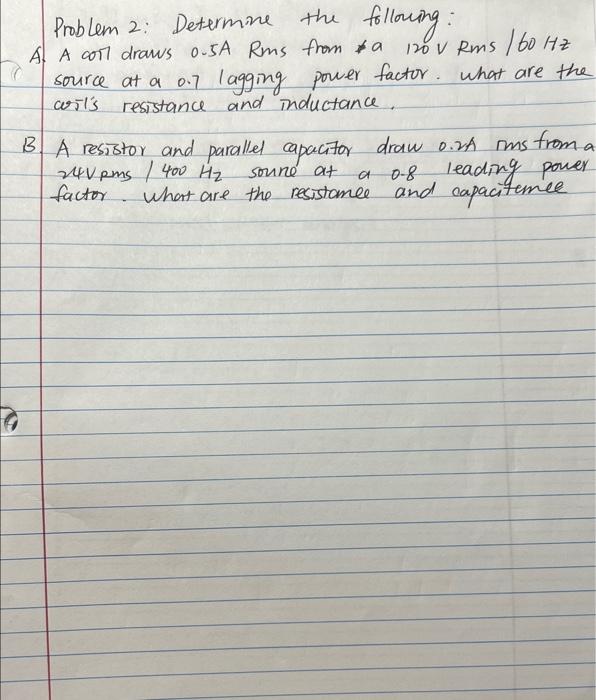 Problem 2: Determine the following:
A. A coil draws 0.5A Rms from a 120 V Rms / 60 Hz
source at a 0.7 lagging power factor. what are the
coil's resistance and inductance.
B. A resistor and parallel capacitor draw 0.2A rms from a
24V rms / 400 Hz sound at a 0.8 leading power
factor. What are the resistamee and capacitemee